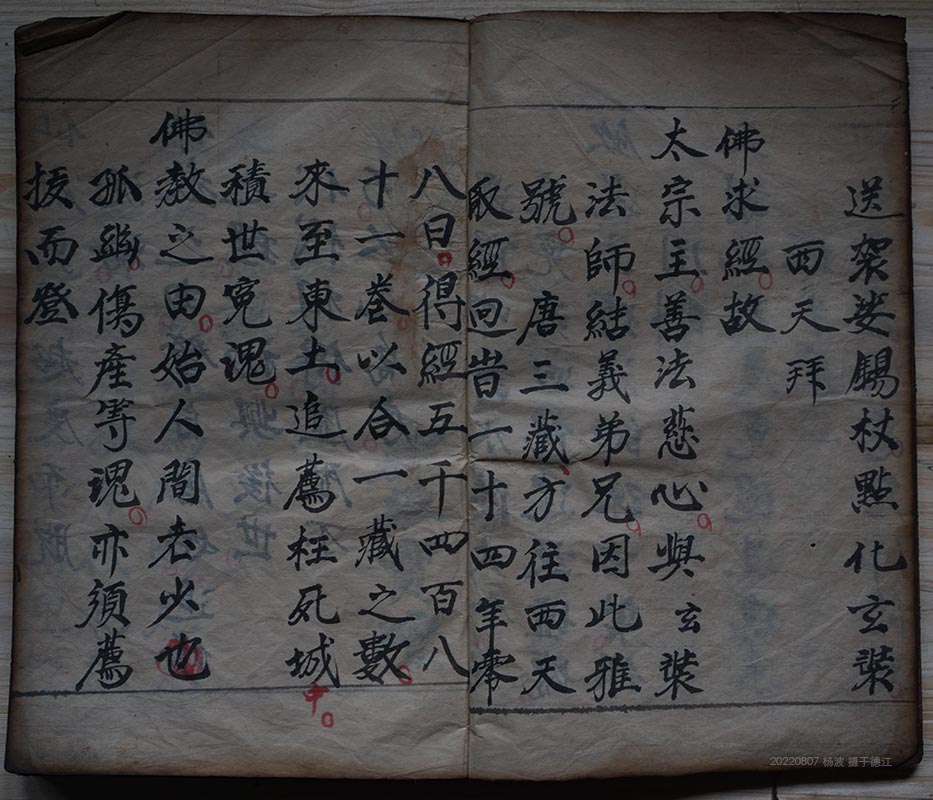 送架娑錫杖點化玄裝
西天拜
佛求經故
太宗主善法慈心與玄裝
法師結義弟兄因此雅
號唐三藏方往西天
取經回昔一十四年零
八日得經五千四百八
十一卷以合一藏之數
來至東土追薦枉死城中
積世冤魂
佛教之由始人間老少也
孤幽傷產等魂亦須薦
拔而登
20220807 杨波 摄于德江